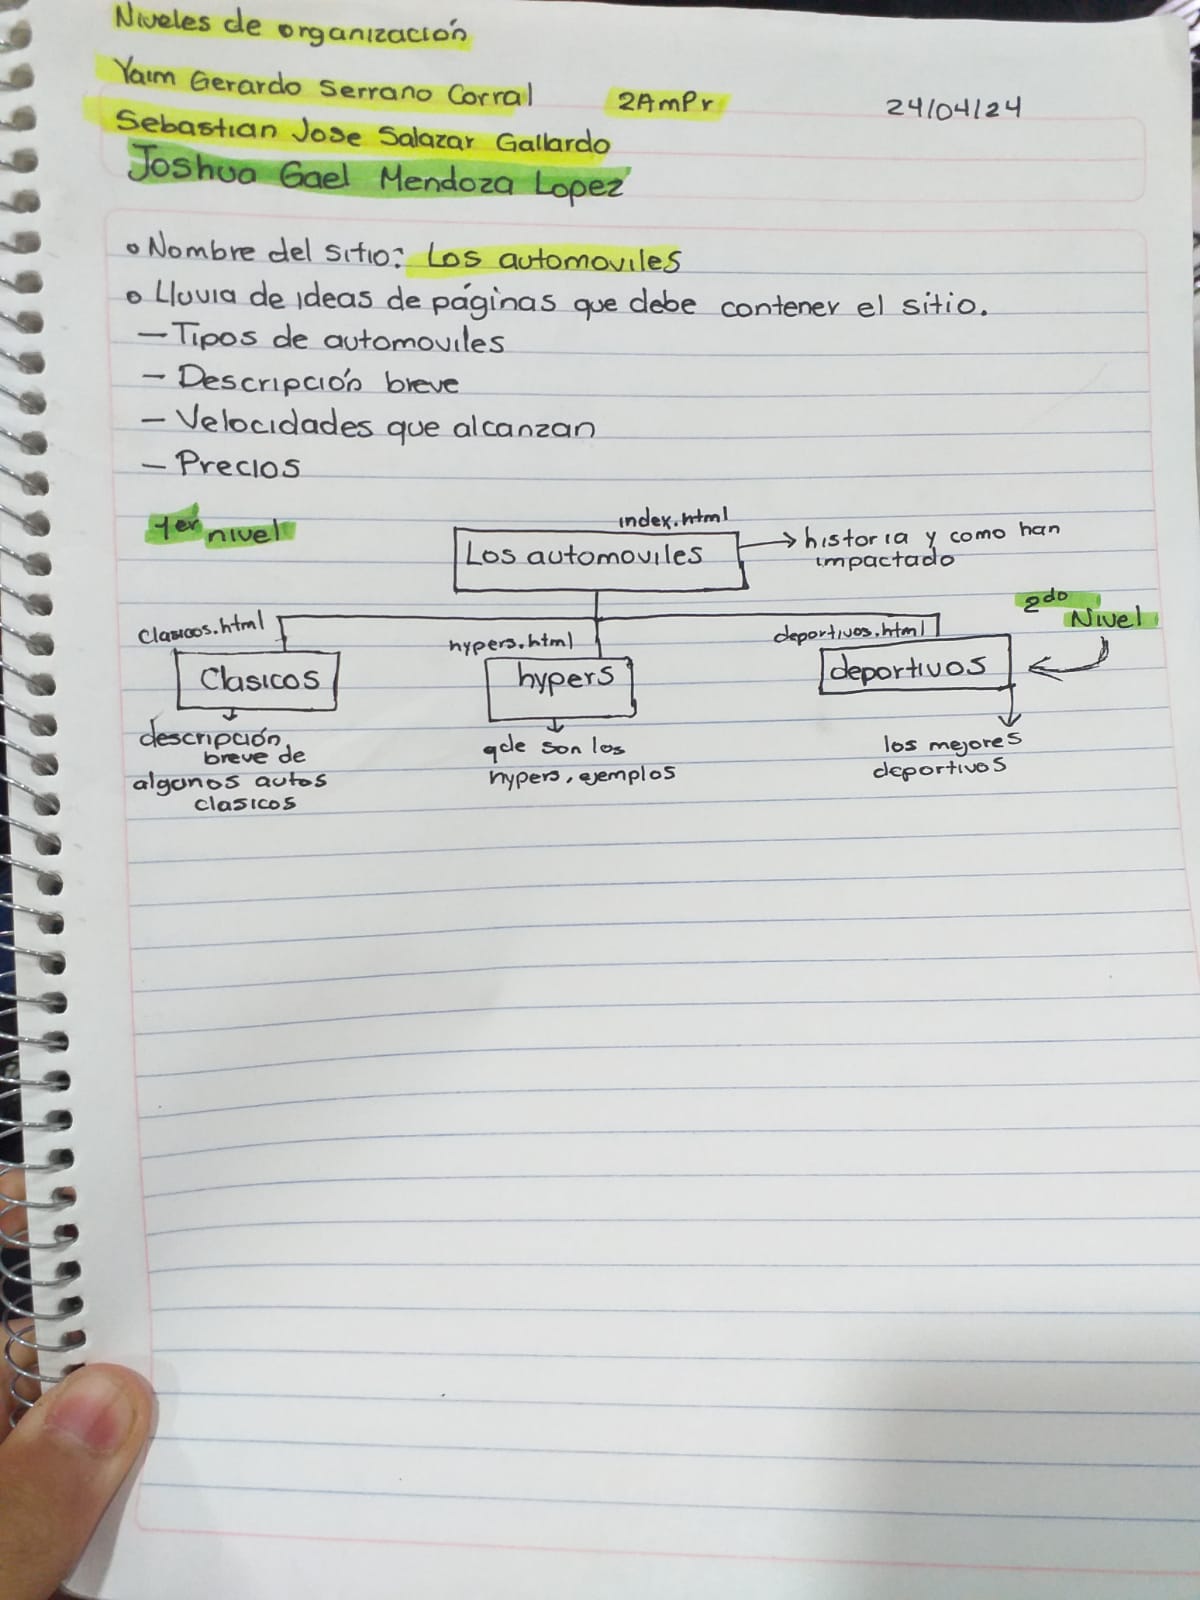 Niveles de organización
Yaim Gerardo Serrano Corral 2AmPr 24/04/24
Sebastian Jose Salazar Gallardo
Joshua Gael Mendoza Lopez
Nombre del sitio: Los automoviles
Lluvia de ideas de páginas que debe contener el sitio.
- Tipos de automoviles
- Descripción breve
- Velocidades que alcanzan
- Precios
1er nivel
index.html
Los automoviles
historia y como han
impactado
2do
Nivel
Clasicos.html
hypers.html
deportivos.html
Clasicos
hypers
deportivos
descripción
breve de
algonos autos
clasicos
qde son los
hypers, ejemplos
los mejores
deportivos